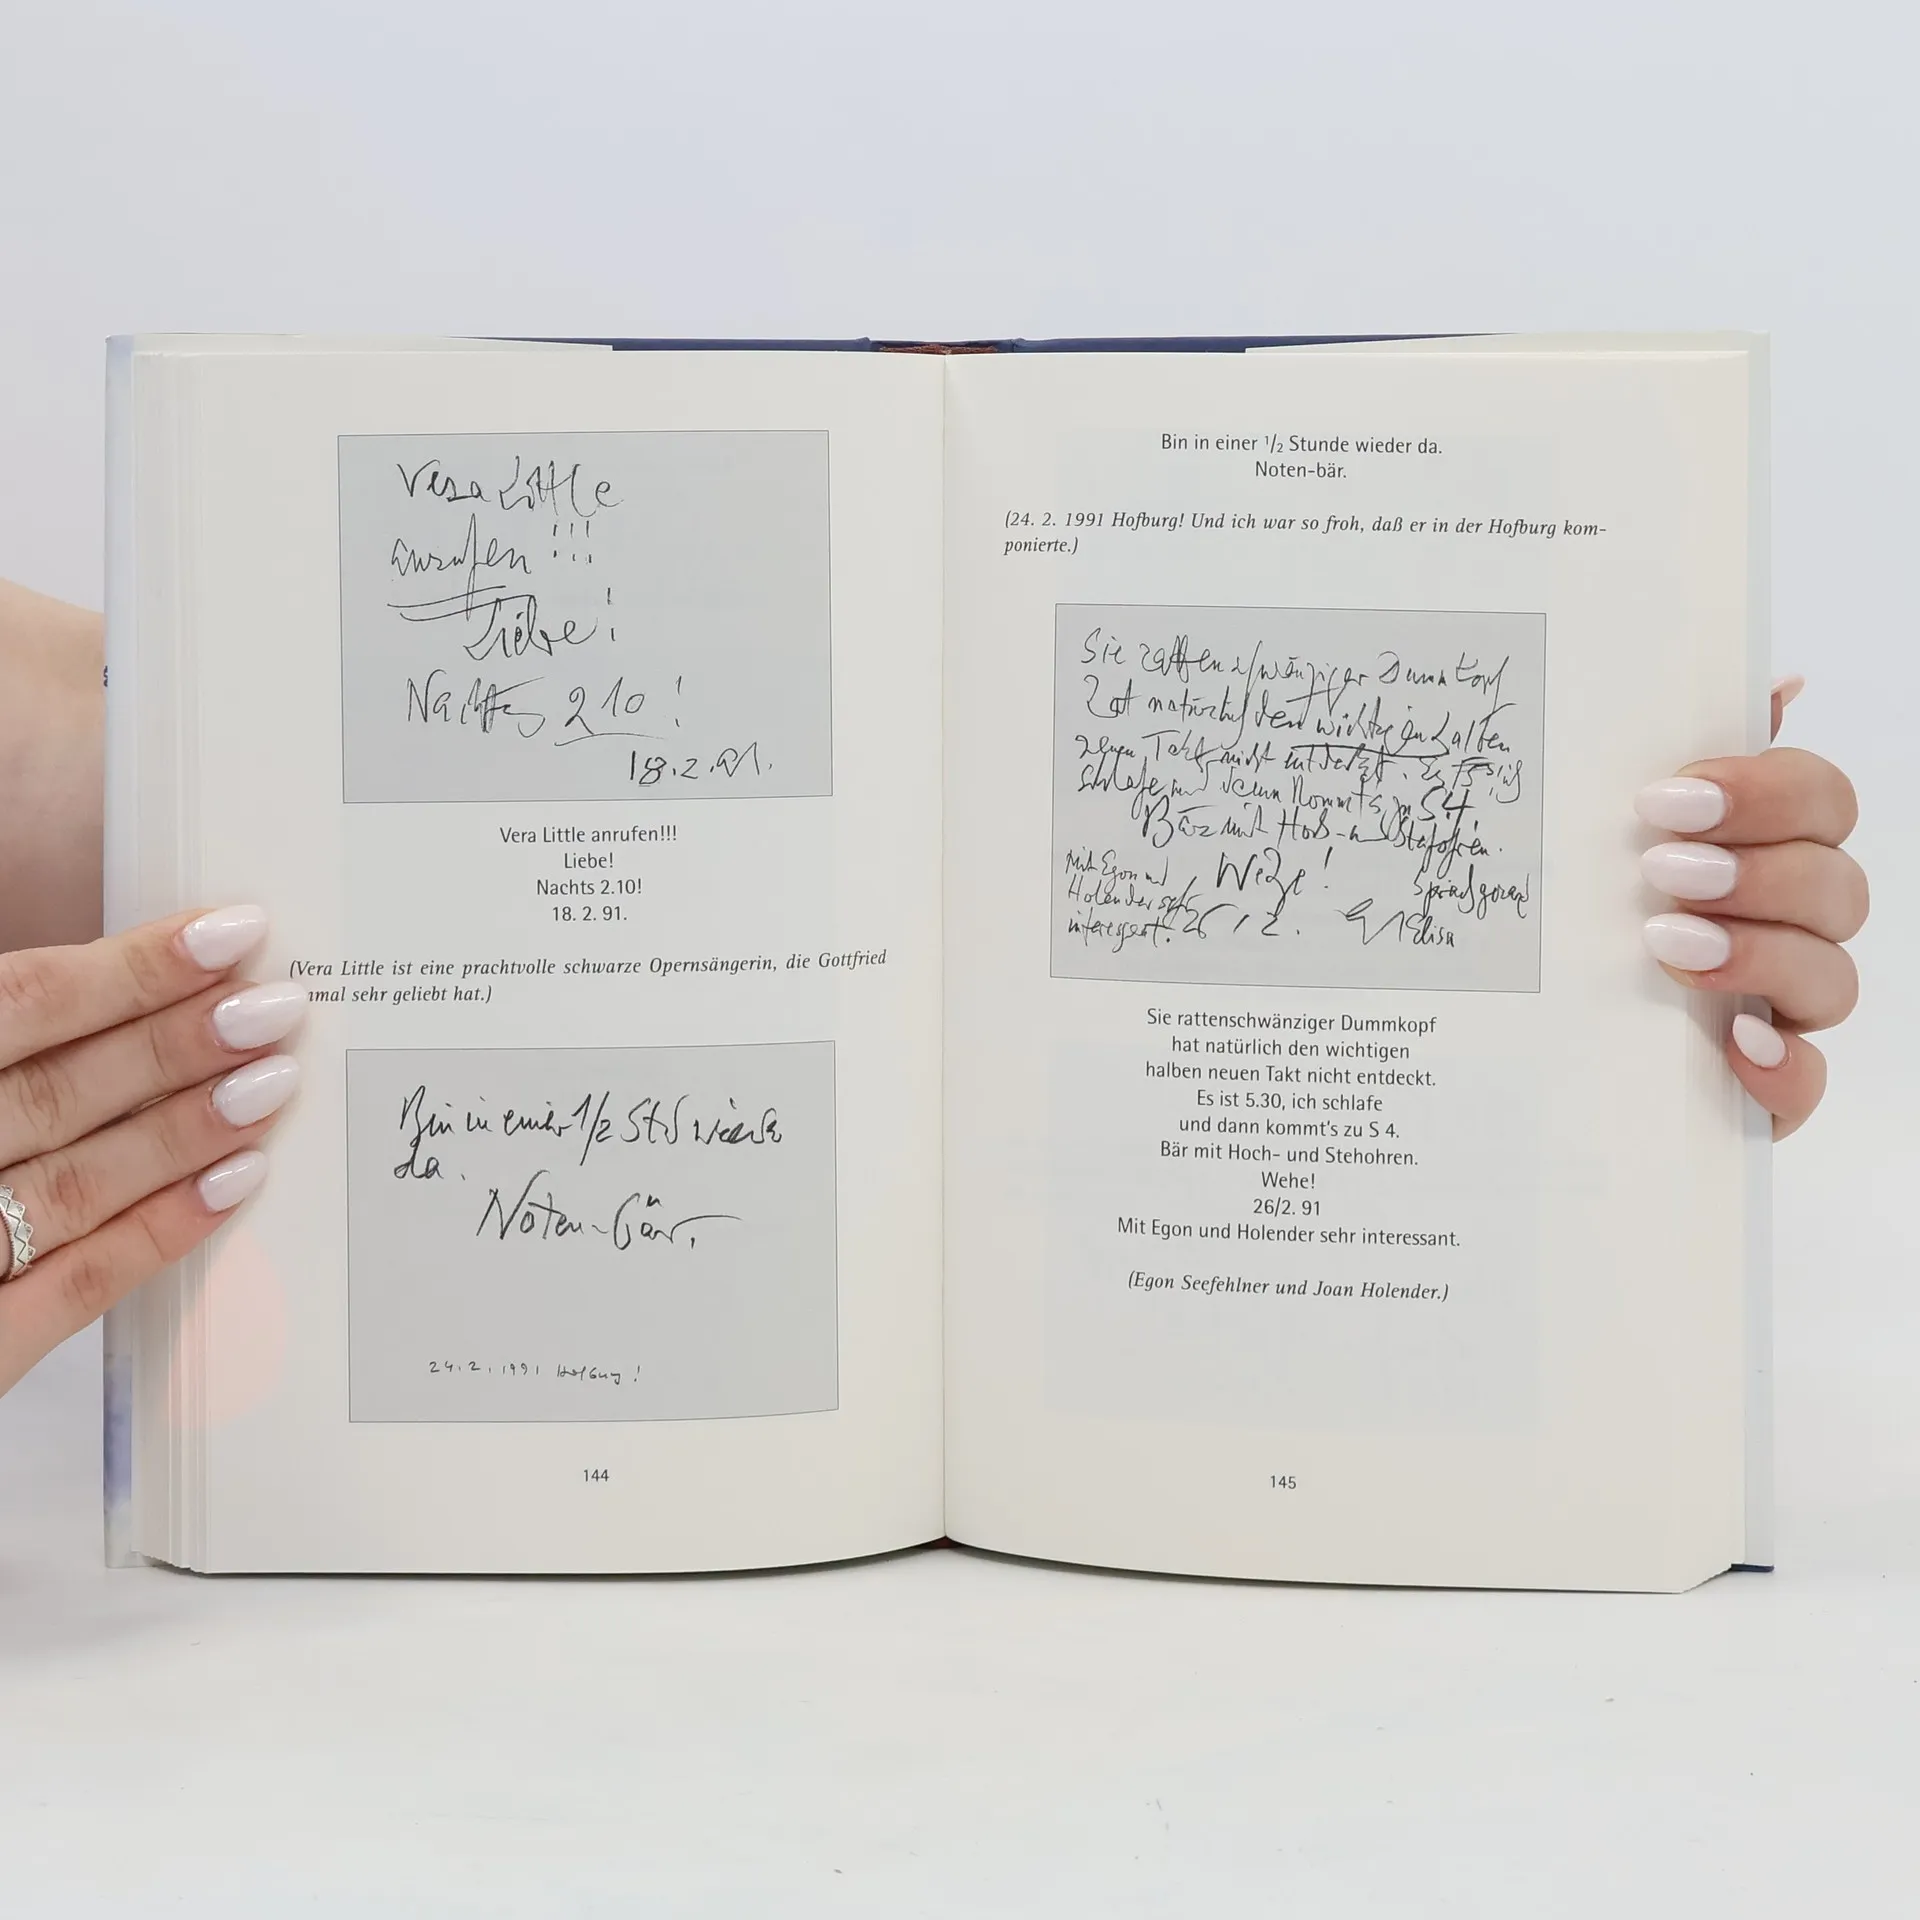 Vera Little
anrufen !!!
Liebe!
Nachts 2 10 !
18.2.91.
Vera Little anrufen!!!
Liebe!
Nachts 2.10!
18. 2. 91.
(Vera Little ist eine prachtvolle schwarze Opernsängerin, die Gottfried
mal sehr geliebt hat.)
Bin in einer 1/2 Std wieder
da.
Noten-bär.
24.2.1991 Hofburg!
144
Bin in einer 1/2 Stunde wieder da.
Noten-bär.
(24. 2. 1991 Hofburg! Und ich war so froh, daß er in der Hofburg kom-
ponierte.)
Sie rattenschwänziger Dummkopf
hat natürlich den wichtigen halben
neuen Takt nicht entdeckt. Es ist 5 ich
schlafe und dann kommts zu S4.
Bär mit Hoch- und Stehohren.
Mit Egon und
Holender sehr
interessant.
Wehe!
26/2.
145
Sie rattenschwänziger Dummkopf
hat natürlich den wichtigen
halben neuen Takt nicht entdeckt.
Es ist 5.30, ich schlafe
und dann kommt's zu S 4.
Bär mit Hoch- und Stehohren.
Wehe!
26/2. 91
Mit Egon und Holender sehr interessant.
(Egon Seefehlner und Joan Holender.)